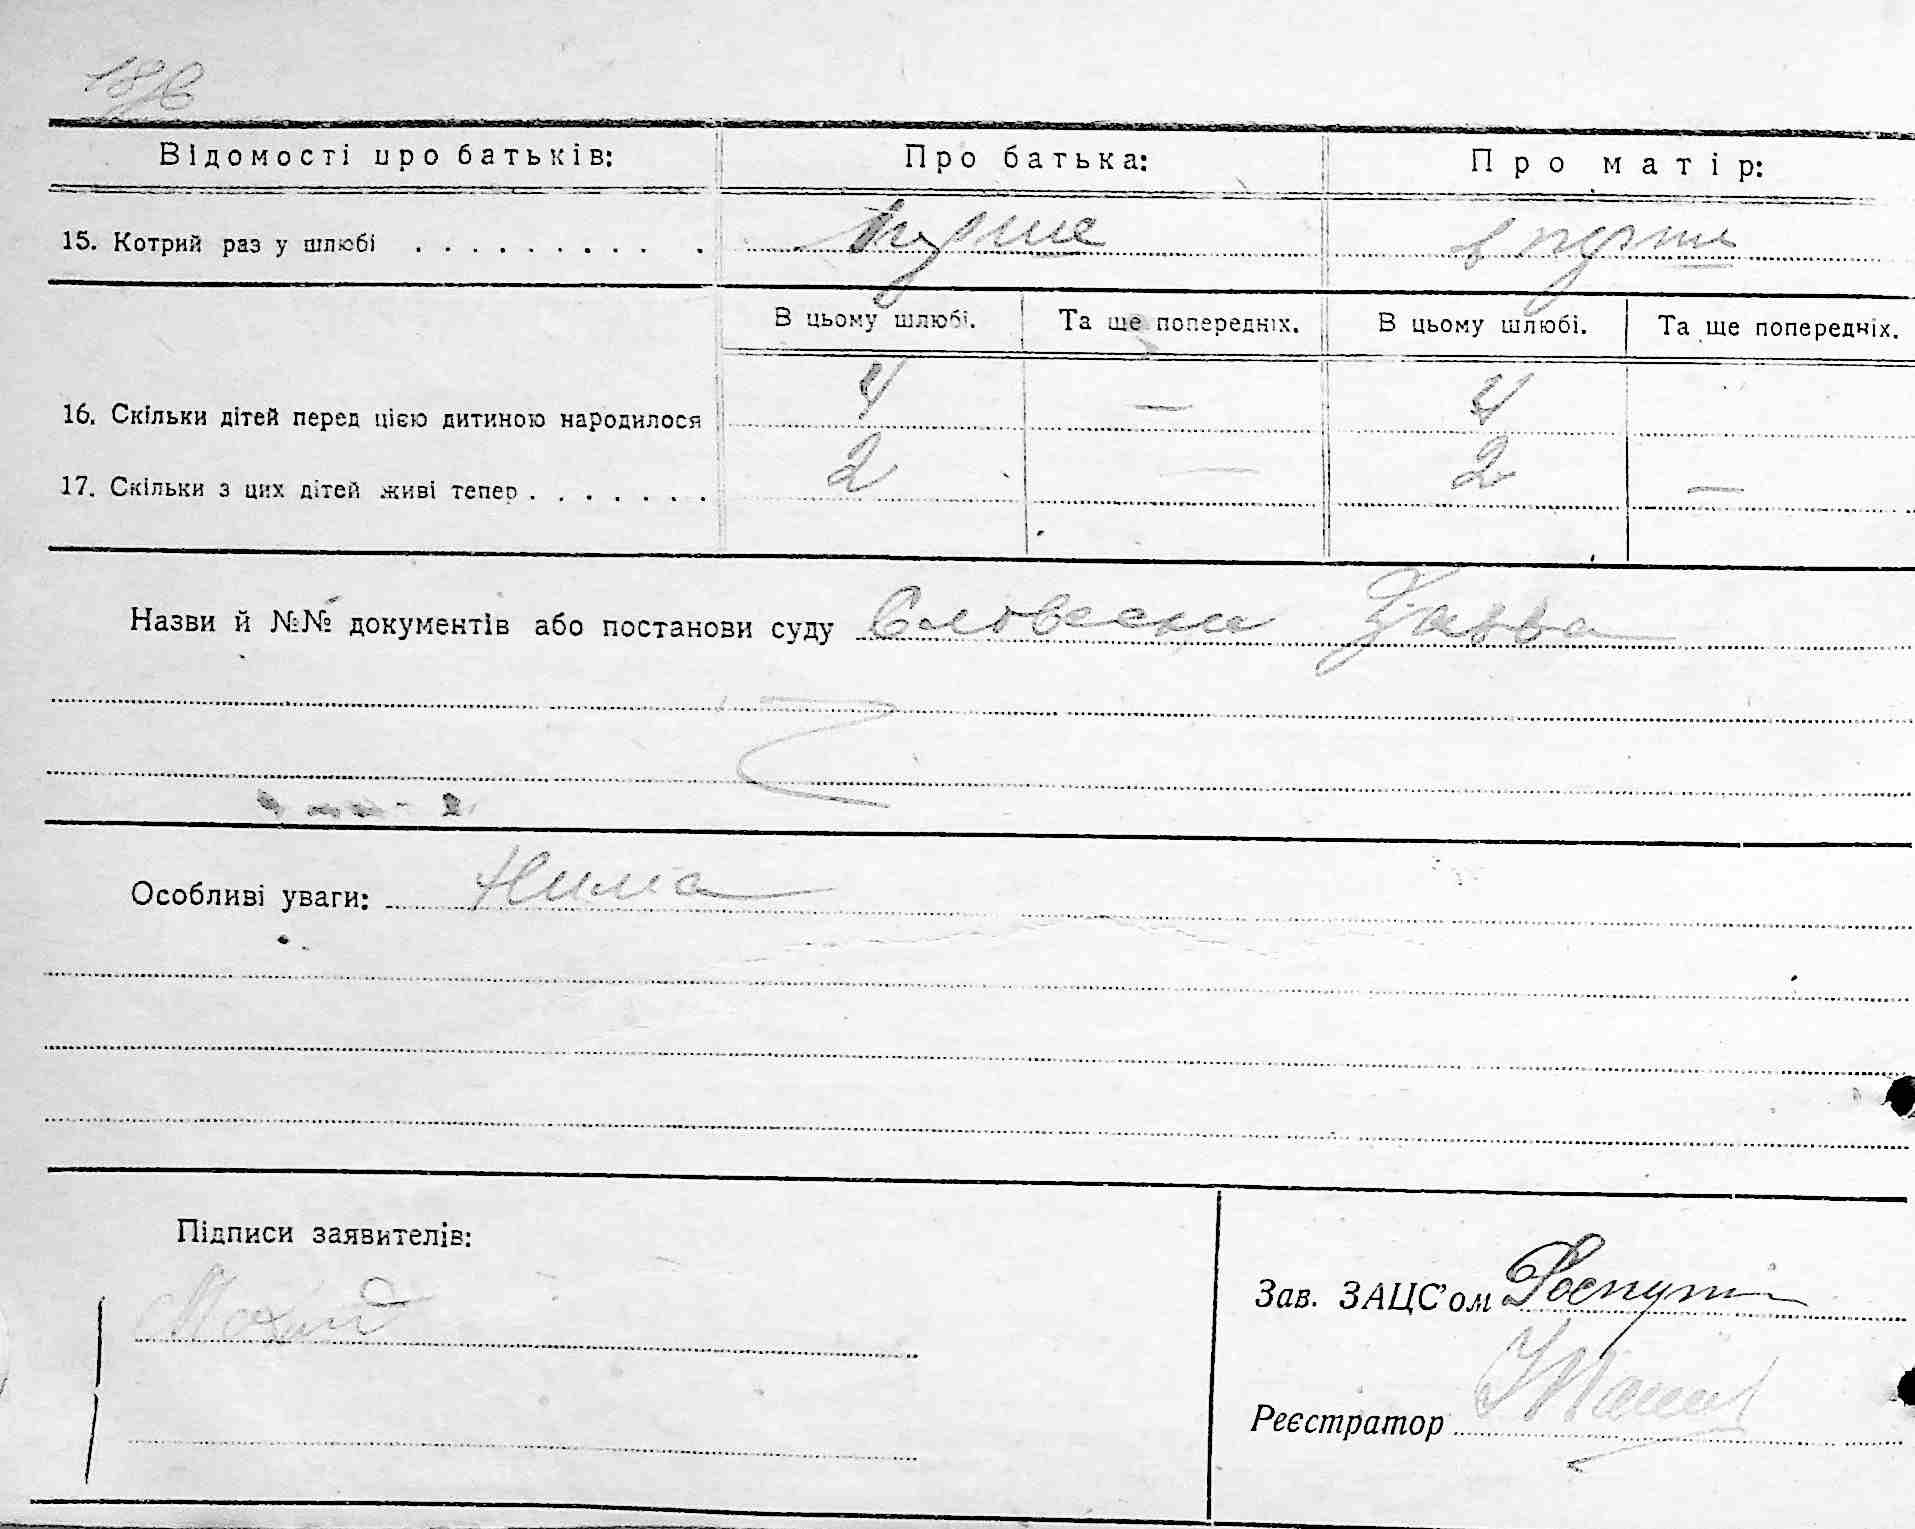 Відомості про батьків: Про батька: Про матір:
15. Котрий раз у шлюбі . . . . . . . . . . перше в перше
В цьому шлюбі. Та ще попередніх. В цьому шлюбі. Та ще попередніх.
16. Скільки дітей перед цією дитиною народилося 4 — 4
17. Скільки з цих дітей живі тепер . . . . . . . 2 — 2 —
Назви й №№ документів або постанови суду Словесна Заява
Особливі уваги: Нима
Підписи заявителів:
Зав. ЗАЦС'ом
Реєстратор